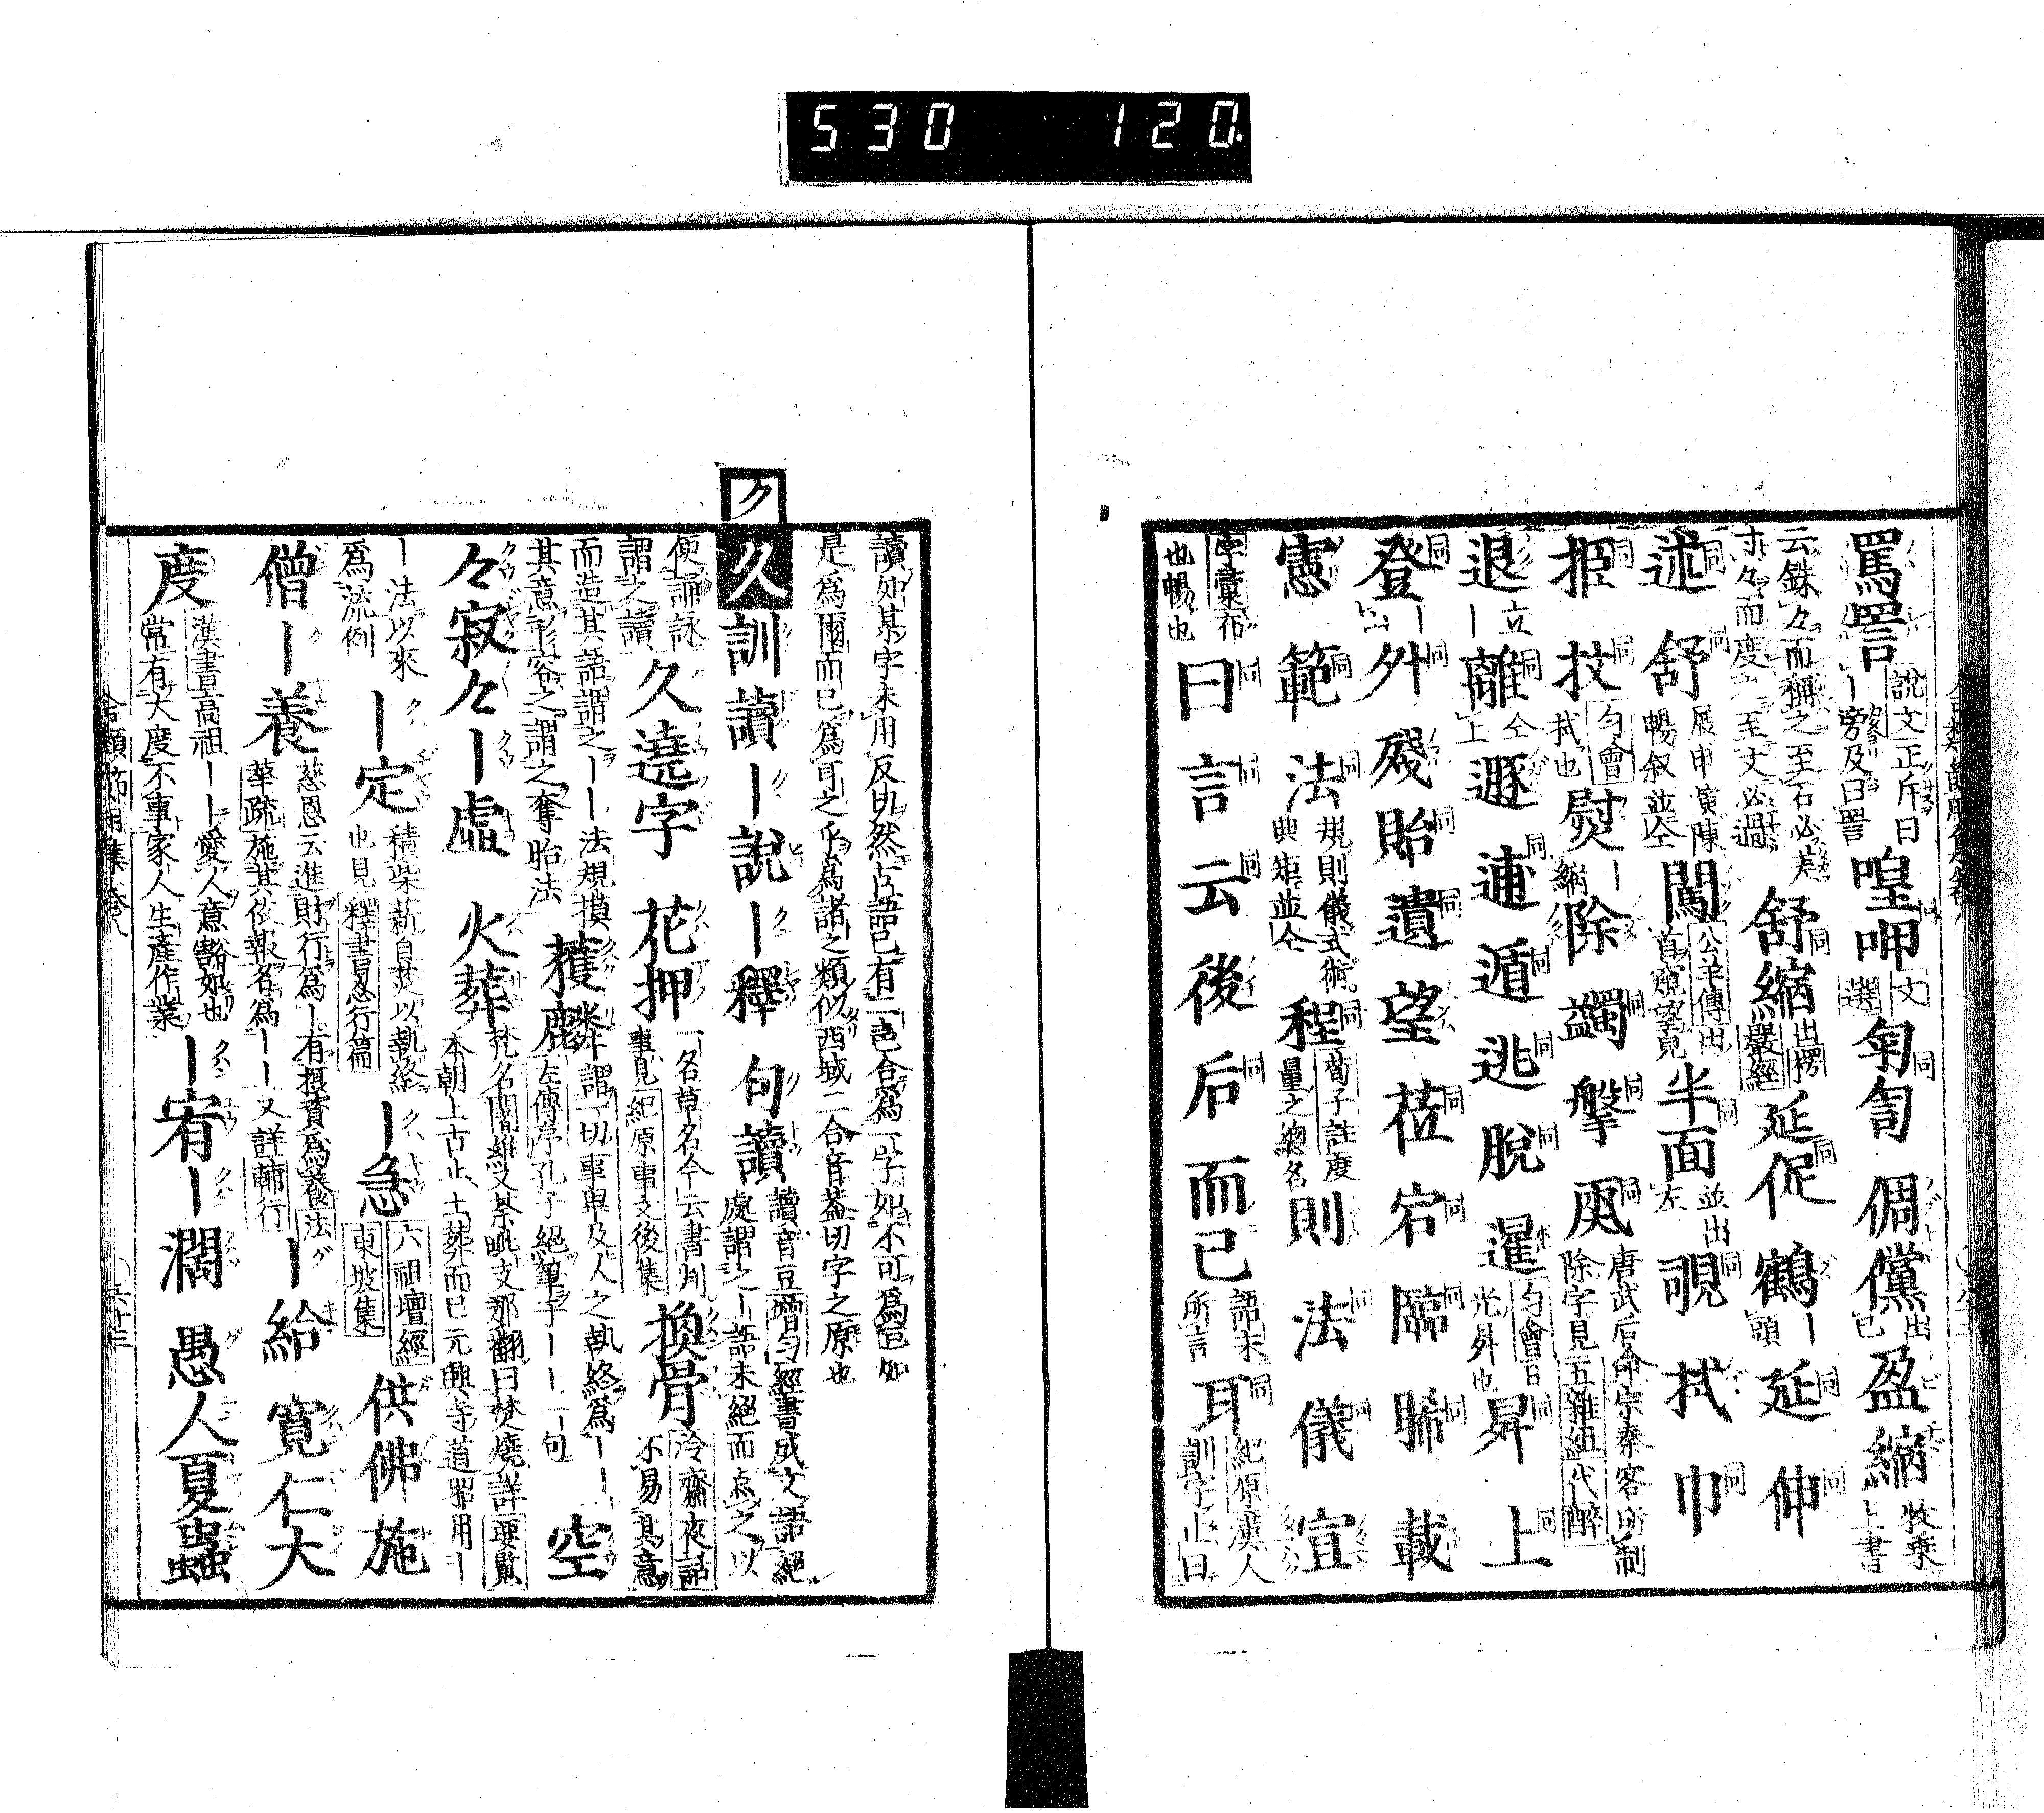 530 120
罵詈 說文正斥曰ー旁及曰詈 喤呷 文選 匍匐 倜儻 出 盈縮 牧乘上書
云銖々而稱之至石必差寸々而度之至丈必過 舒縮 出楞嚴經 延促 鶴ー 頭 延伸
述 舒 展申演陳暢叙並仝 闖 公羊傳出首窺望皃 半面 並出 覗 拭 巾
拒 抆 匀會拭也 熨ー 除 蠲 撃 唐武后命宗秦客所制除字見五雜組代醉
退 立ー 離 仝上 遯 逋 遁 逃 脫 暹 匀會日光舛也 昇 上
登ー 外 殘 貽 遺 望 莅 臨 睎 載
憲 範 法 規則儀式術典矩並仝 程 荀子註度量之總名 則 法 儀 宜
字彙布也暢也 曰 言 云 後 后 而已 語末所言 耳 紀原漢人訓字止曰
讀如某字未用反切然古語已有二音合爲一字如不可爲叵如
是爲爾而已爲耳之乎爲諸之類似西域二合音蓋切字之原也
ク
久 訓讀 ー說 ー釋 句讀 讀音豆增匀經書成文語絕處謂之ー語未絕而点之以
便誦詠謂之讀 久遶字 花押 一名草名今云書判事見紀原事文後集 換骨 冷齋夜話不易其意
而造其語謂之ーー法規摸其意形容之謂之奪胎法 獲麟 謂一切事與及人之執終爲ーー左傳序孔子絕筆于ーー一句 空
々寂々 ー虛 火葬 梵名闍維又茶毗支那翻曰焚燒詳要覽本朝上古止土葬而已元興寺道昭用ー
ー法以來爲流例 ー定 積柴薪自焚以執終也見釋書忍行篇 ー急 六祖壇經東坡集 供佛施
僧 ー養 慈恩云進財行爲ー有攝資爲養法華疏施其依報名爲ーー又詳輔行 ー給 寛仁大
度 漢書高祖ーー愛人意豁如也常有大度不事家人生產作業 ー宥 ー濶 愚人夏蟲